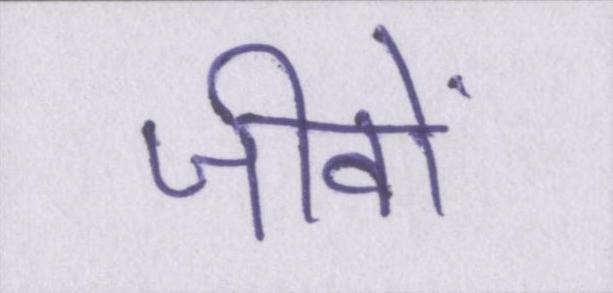 जीवों